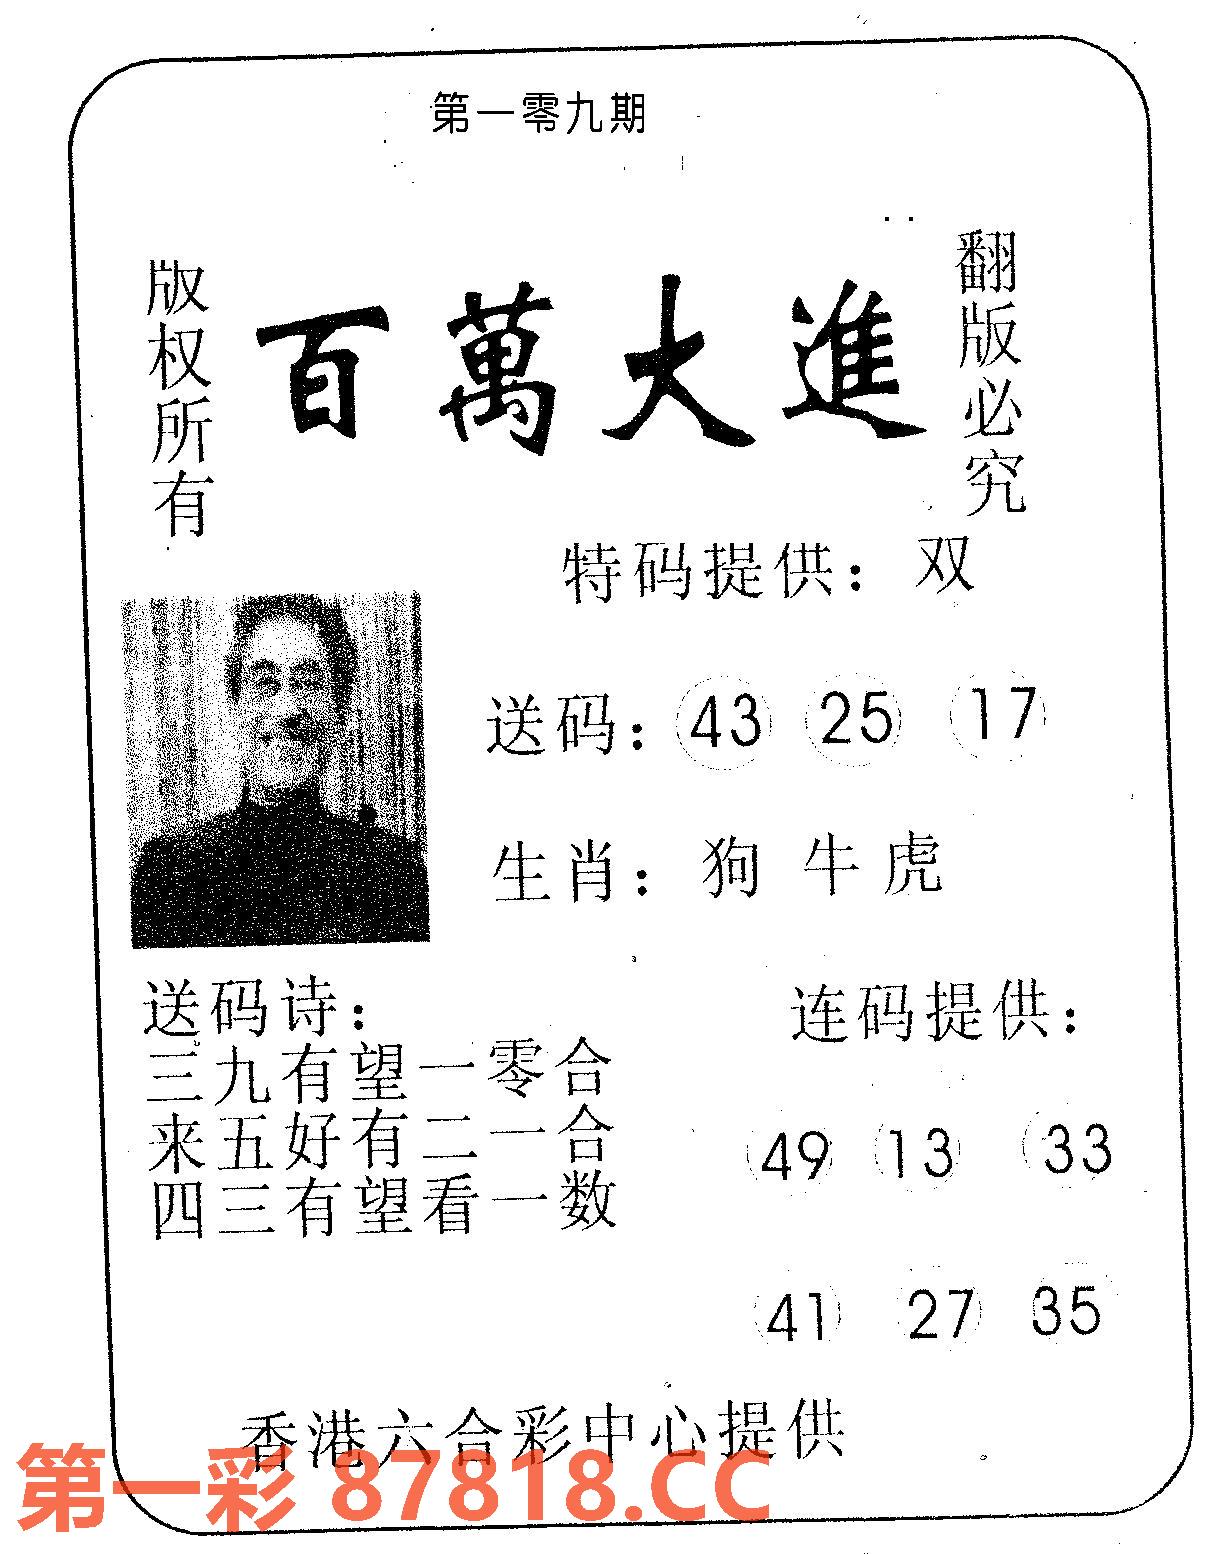 第一零九期
版权所有
百萬大進
翻版必究
特码提供：双
送码：43 25 17
生肖：狗 牛 虎
送码诗：
三九有望一零合
来五好有二一合
四三有望看一数
连码提供：
49 13 33
41 27 35
香港六合彩中心提供
第一彩 87818.CC